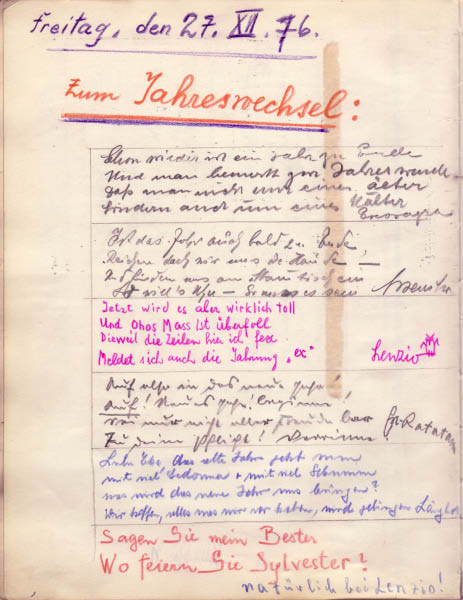 Freitag, den 27. XII. 76.
Zum Jahreswechsel:
Schon wieder ist ein Jahr zu Ende
Und man bemerkt zur Jahreswende
Daß man nicht nur eines älter
Sondern auch um eines kälter
Ist das Jahr auch bald zu Ende,
Reichen doch wir uns die Hände —
uns am Stammtisch ein
So will's — so muss es sein
Jetzt wird es aber wirklich toll
Und Ohos Mass ist überfoll
Dieweil die Zeilen hier ich fex
Meldet sich auch die Jahrung „ex"
Lenzio
Auf also in das neue Jahr!
Auf! Neues Jahr, beginne!
nur nicht aller Freude bar
Zu deinem
Ratatam
Liebe Ebe, das alte Jahr geht nun
mit viel + mit viel
was wird das neue Jahr uns bringen?
Wir hoffen, alles was wir vor haben, wird gelingen
Sagen Sie mein Bester
Wo feiern Sie Sylvester?
natürlich bei Lenzio!